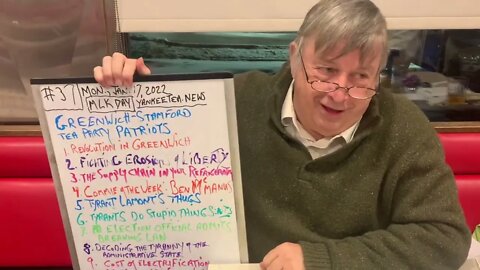 #37 MON, JAN, 17, 2022
MLK DAY YANKEETEA.NEWS
GREENWICH-STAMFORD
TEA PARTY PATRIOTS
1. REVOLUTION IN GREENWICH
2. FIGHTING EROSION of LIBERTY
3. THE SUPPLY CHAIN IN YOUR REFRIGERATOR
4. COMMIE of THE WEEK: BEN MCMANUS
5. TYRANT LAMONT'S THUGS
6. TYRANTS DO STUPID THINGS
7. ELECTION OFFICIAL ADMITS
BREAKING LAW
8. DECODING THE TYRANNY of THE
ADMINISTRATIVE STATE
9. COST of ELECTRIFICATION